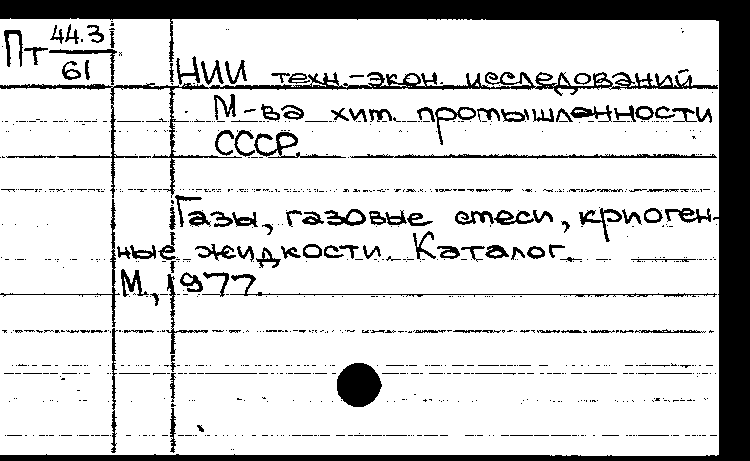 Пт 44.3
61
НИИ техн.-экон. исследований
М-ва хим. промышленности
СССР.
Газы, газовые смеси, криоген-
ные жидкости. Каталог.
М., 1977.